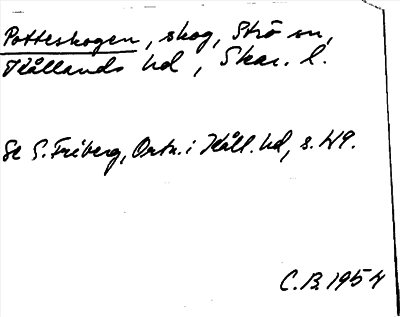 Potteskogen, skog, Strö sn,
Kållands hd, Skar. l.
Se S. Friberg, Ortn. i Kåll. hd, s. 49.
C.B. 1954